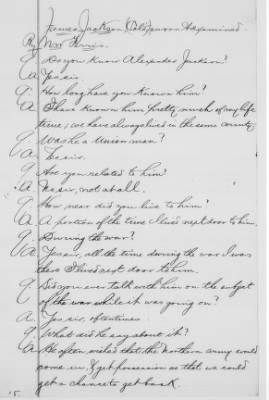 James Jackson (Col) sworn & examined
By Mr.
Q Do you know Alexander Jackson?
A Yes sir.
Q How long have you known him?
A I have known him pretty much of my life
time; we have always lived in the same county.
Q Was he a Union man?
A Yes sir.
Q Are you related to him?
A No sir, not at all.
Q How near did you live to him?
A A portion of the time I lived next door to him.
Q During the war?
A Yes sir, all the time during the war I was
there I lived next door to him.
Q Did you ever talk with him on the subject
of the war while it was going on?
A. Yes sir, oftentimes.
Q What did he say about it?
A He often wished that the Northern army would
come in & get possession so that we could
get a chance to get back.